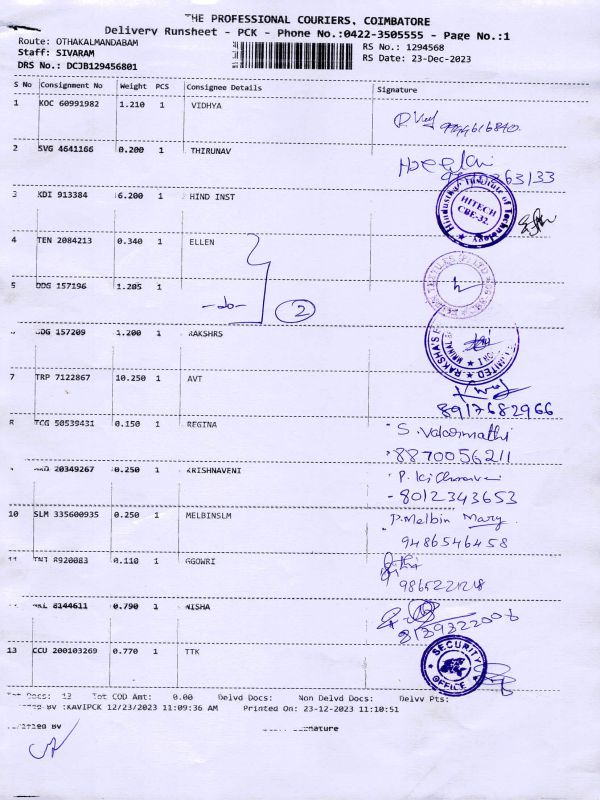 THE PROFESSIONAL COURIERS, COIMBATORE
Delivery Runsheet - PCK - Phone No.:0422-3505555 - Page No.:1
Route: OTHAKALMANDABAM
Staff: SIVARAM
DRS No.: DCJB129456801
RS No.: 1294568
RS Date: 23-Dec-2023
S No Consignment No Weight PCS Consignee Details Signature
1 KOC 60991982 1.210 1 VIDHYA
2 SVG 4641166 0.200 1 THIRUNAV
3 KDI 913384 6.200 1 HIND INST
Hindusthan Institute of Technology
HITECH
CBE-32.
4 TEN 2084213 0.340 1 ELLEN
5 DDG 157196 1.205 1
-do- 2
DDG 157209 1.200 1 RAKSHRS
7 TRP 7122867 10.250 1 AVT
8917682966
8 TCG 50539431 0.150 1 REGINA
8870056211
20349267 0.250 1 KRISHNAVENI
- 8012343653
10 SLM 335600935 0.250 1 MELBINSLM
P.Melbin Mary
9486546458
8920083 0.110 1 GGOWRI
8144611 0.790 1 NISHA
13 CCU 200103269 0.770 1 TTK
SECURITY
OFFICE
Tot Docs: 13 Tot COD Amt: 0.00 Delvd Docs: Non Delvd Docs: Delvv Pts:
BV :KAVIPCK 12/23/2023 11:09:36 AM Printed On: 23-12-2023 11:10:51
Verified BV Signature